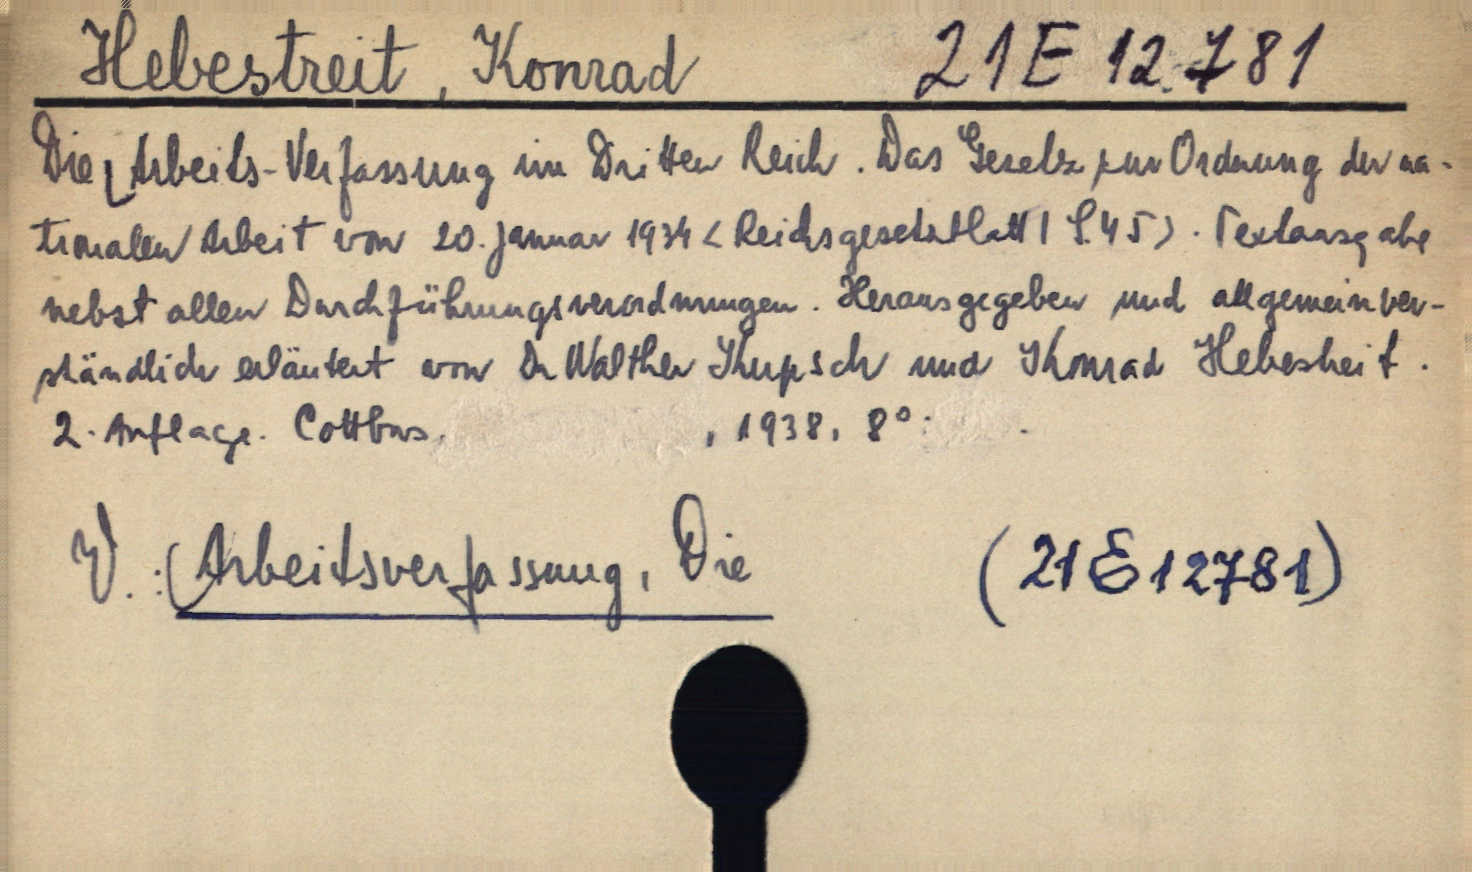 Hebestreit, Konrad 21 E 12.781
Die [Arbeits-Verfassung im Dritten Reich. Das Gesetz zur Ordnung der na-
tionalen Arbeit vom 20. Januar 1934 <Reichsgesetzblatt I S.45>. Textausgabe
nebst allen Durchführungsverordnungen. Herausgegeben und allgemeinver-
ständlich erläutert von Dr Walther Kupsch und Konrad Hebestreit.
2. Auflage. Cottbus, , 1938. 8°: .
V.: (Arbeitsverfassung, Die (21 E 12781)